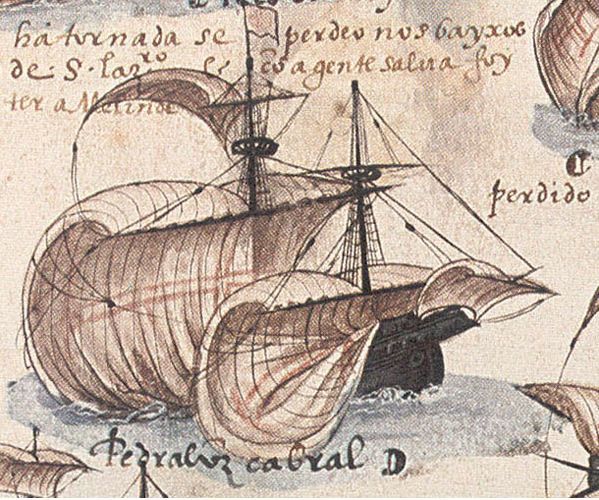 há tornada se perdeo nos bayxos
de · S · Lazro e cõ a gente salua foy
ter a Melinde
C
perdido
Pedraluz cabral D